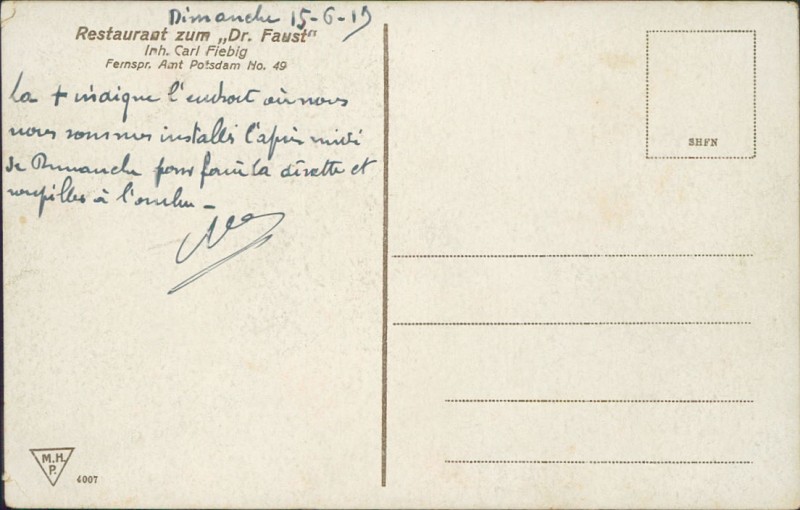 Dimanche 15-6-19
Restaurant zum „Dr. Faust“
Inh. Carl Fiebig
Fernspr. Amt Potsdam No. 49
La + indique l'endroit où nous
nous sommes installés l'après midi
de Dimanche pour faire la dinette et
roupiller à l'ombre -
SHFN
M.H.
P.
4007